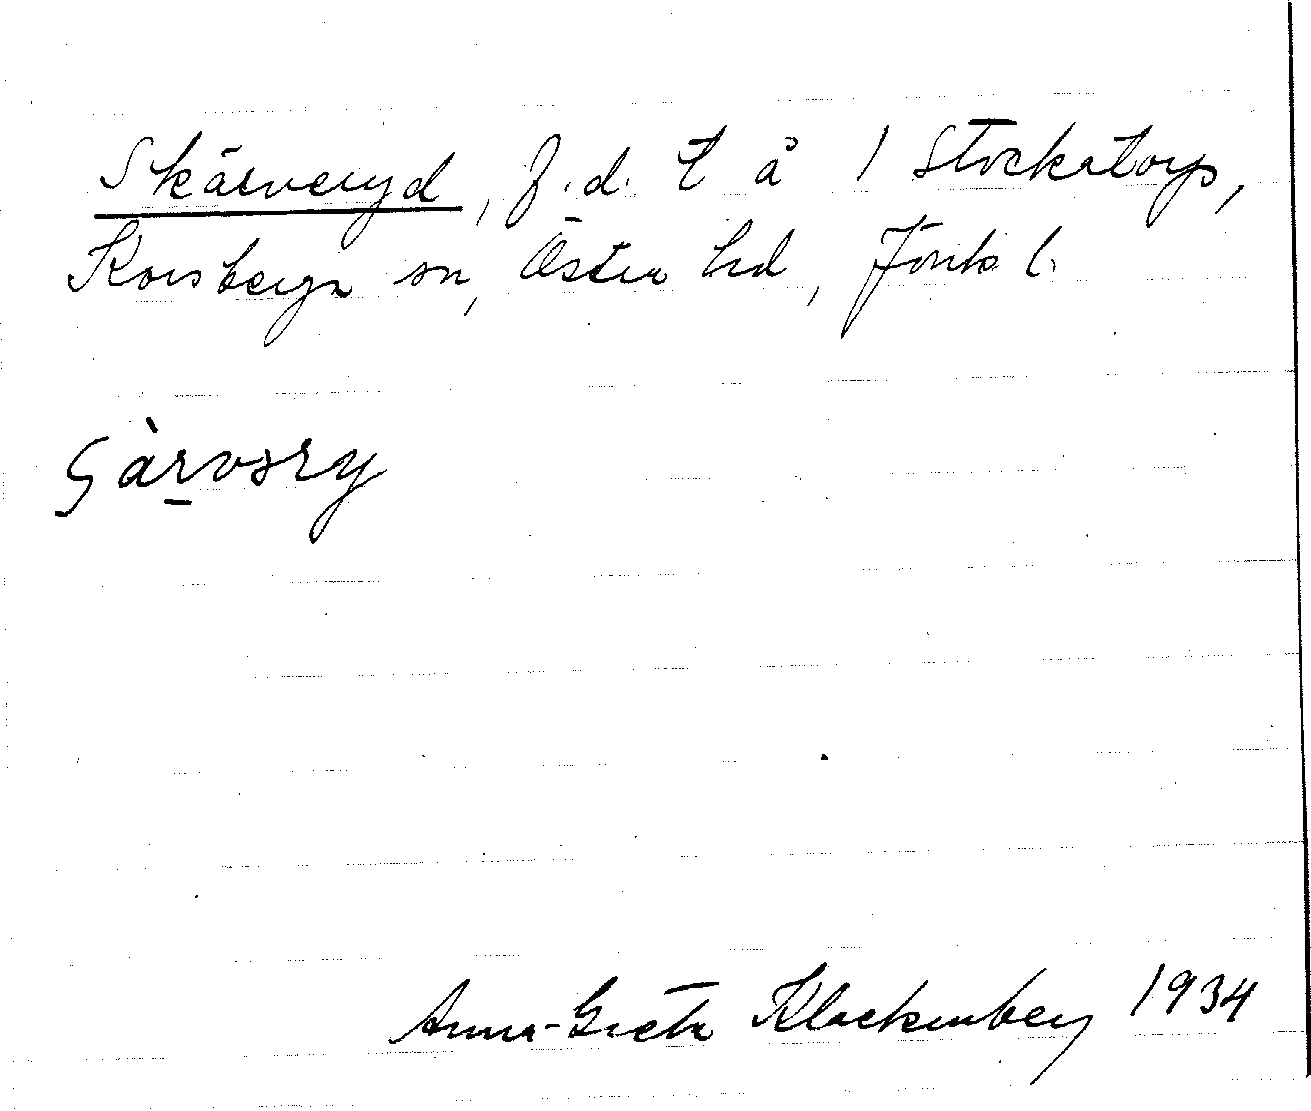 Skärveryd, f.d. t å 1 Stockatorp,
Korsberga sn, Östra hd, Jönk. l.
Anna-Greta Klockenberg 1934